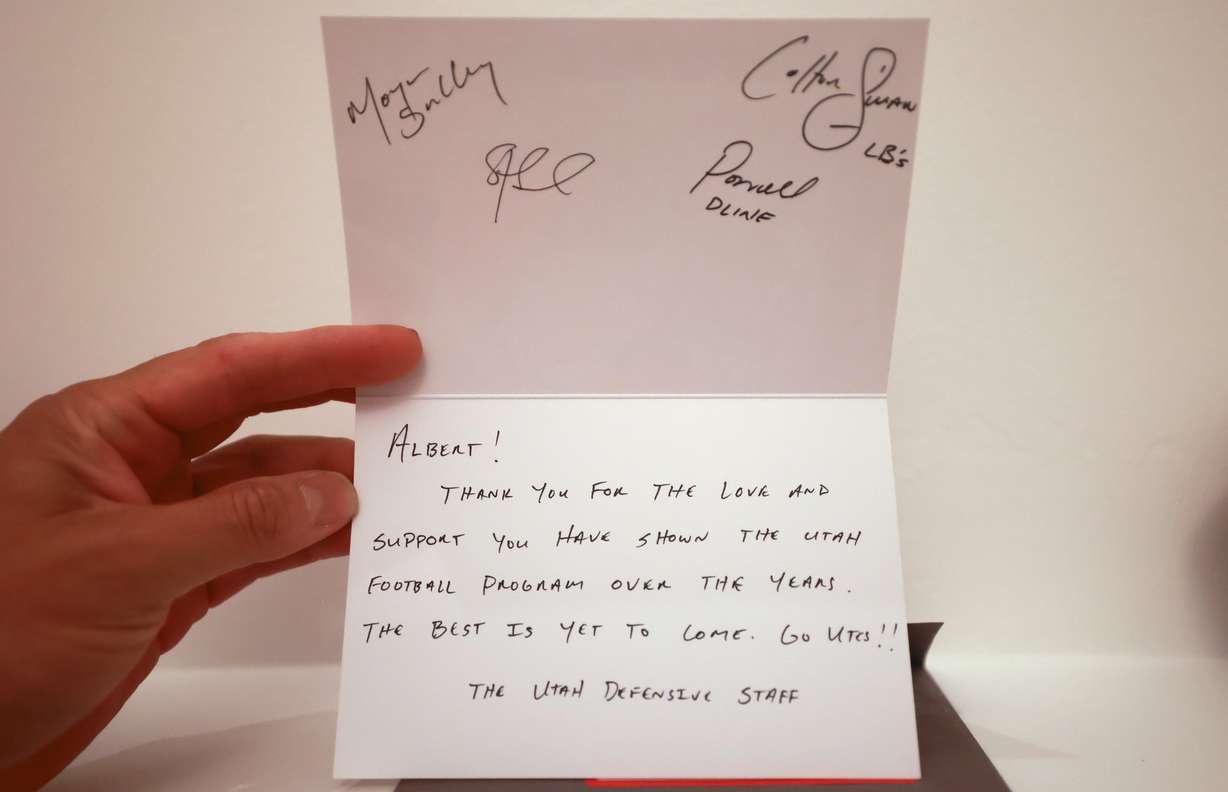 Morgan Scalley
Colton Swan
LB's
Powell
DLINE
ALBERT!
THANK YOU FOR THE LOVE AND
SUPPORT YOU HAVE SHOWN THE UTAH
FOOTBALL PROGRAM OVER THE YEARS.
THE BEST IS YET TO COME. GO UTES!!
THE UTAH DEFENSIVE STAFF